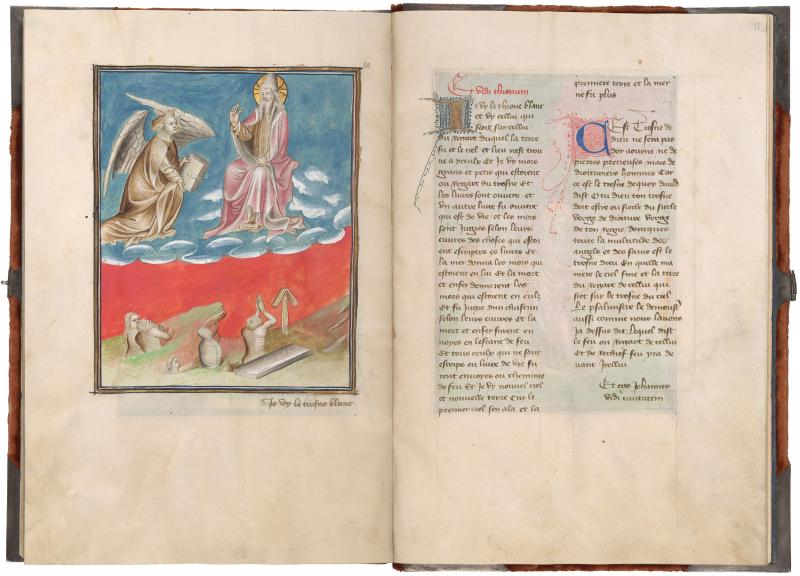 80.
Je vy le trosne blanc
Et vidi thronum
Je vy le throne blanc
et vy cellui qui
seoit sur cellui
du regart duquel la terre
fui et le ciel et lieu nest trou
ve a yceulx Et Je vy mors
grans et petis qui estoient
ou regart du trosne Et
les livres sont ouvers et
un autre livre fu ouvert
qui est de vie et les mors
sont Jugies selon leurs
euvres des choses qui estoi
ent escriptes es livres Et
la mer donna les mors qui
estoient en lui Et la mort
et enfer donnerent les
mors qui estoient en eulx
Et fu Jugie dun chascun
selon leurs euvres Et la
mort et enfer furent en
voyes en lestanc de feu
Et tous ceulx qui ne sont
escrips ou livre de vie fu
rent envoyes ou
de feu Et Je vy nouvel ciel
et nouvelle terre Car le
premier ciel sen ala et la
premiere terre et la mer
ne fu plus
Cest Trosne de
dieu ne sera pas
dor aourne ne de
pierres precieuses mais de
droituriers hommes Car
ce est le trosne de quoy david
dist O tu dieu ton trosne
dort estre ou siecle du siecle
verge de droiture verge
de ton regne doncques
toute la multitude des
angels et des sains est le
trosne dieu En quelle ma
niere le ciel fuie et la terre
du regart de cellui qui
siet sur le trosne du ciel
Le psalmistre le demoustre
aussi comme nous lavons
Ja dessus dit Lequel dist
le feu ou regart de cellui
Et de rechief feu yra de
vant icellui
Et ego Johannes
vidi civitatem